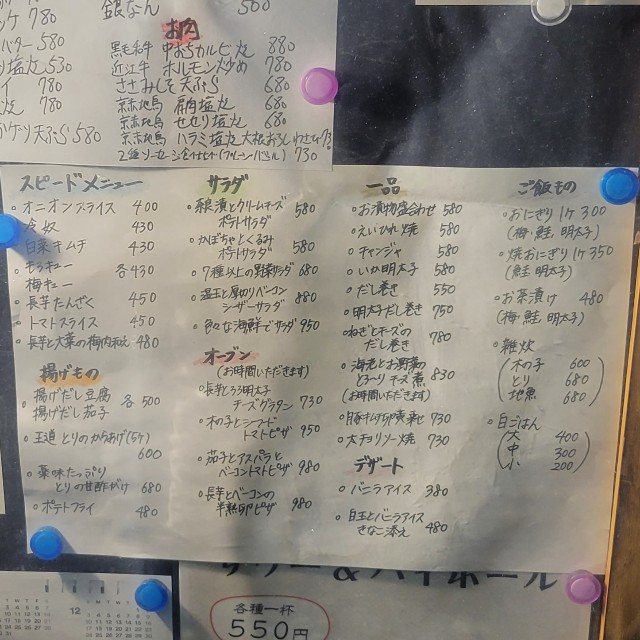 銀なん 500
780
バター 580
塩丸 530
780
780
天ぷら 580
お肉
黒毛和牛 中おちカルビ焼 880
近江牛 ホルモン炒め 780
ささみしそ天ぷら 680
京赤地鳥 肩肉塩焼 680
京赤地鳥 せせり塩焼 680
京赤地鳥 ハラミ塩焼 大根おろし わさび 73
730
スピードメニュー
・オニオンスライス 400
・冷奴 430
・白菜キムチ 430
・モロキュー
梅キュー 各430
・長芋たんざく 450
・トマトスライス 450
・長芋と大葉の梅肉和え 480
揚げもの
・揚げだし豆腐
揚げだし茄子 各500
・王道 とりのからあげ(5ヶ)
600
・薬味たっぷり
とりの甘酢がけ 680
・ポテトフライ 480
サラダ
・クリームチーズ
ポテトサラダ 580
・かぼちゃとくるみ
ポテサラダ 580
・7種以上の野菜サラダ 680
・温玉と厚切りベーコン
シーザーサラダ 880
・色々な海鮮でサラダ 950
オーブン
(お時間いただきます)
・長芋とろろ明太子
チーズグラタン 730
・木の子とシーフード
トマトピザ 950
・茄子とアスパラと
ベーコントマトピザ 980
・長芋とベーコンの
半熟卵ピザ 980
一品
・お漬物盛合わせ 580
・えいひれ焼 580
・チャンジャ 580
・いか明太子 580
・だし巻き 550
・明太子だし巻き 750
・ねぎとチーズの
だし巻き 780
・海老とお野菜の
とろ〜りチーズ煮 830
(お時間いただきます)
・豚キムチ卵炒め 730
・太チョリソー焼 730
デザート
・バニラアイス 380
・白玉とバニラアイス
きなこ添え 480
ご飯もの
・おにぎり1ケ 300
(梅・鮭・明太子)
・焼おにぎり1ケ 350
(鮭 明太子)
・お茶漬け 480
(梅・鮭・明太子)
・雑炊
木の子 600
とり 680
地魚 680
・白ごはん
大 400
中 300
小 200
サワー&ハイボール
各種一杯
550円
12